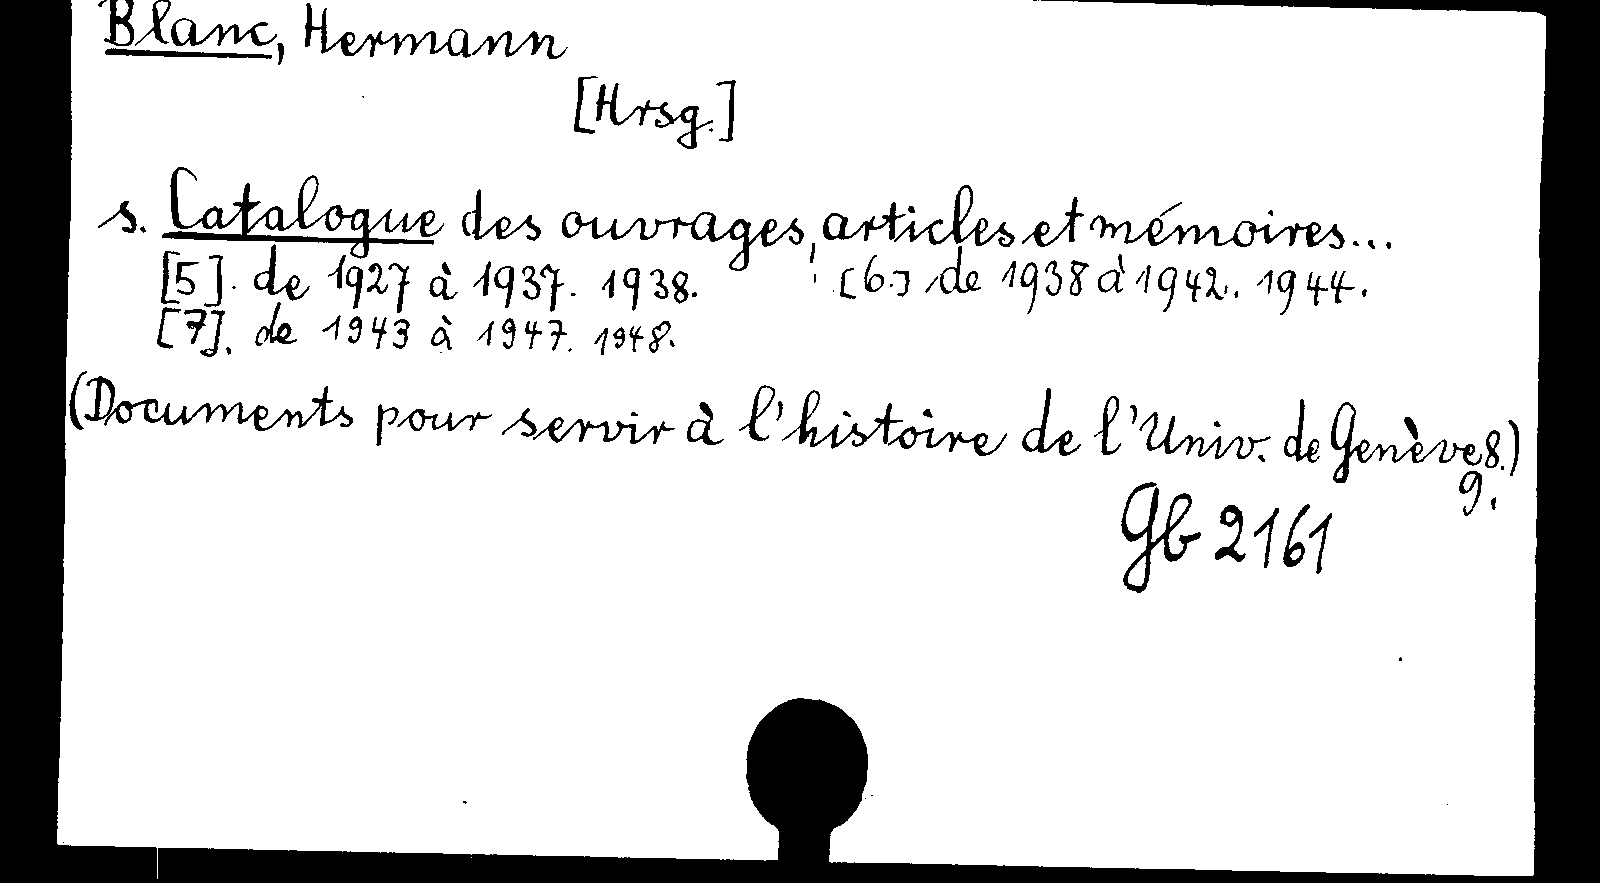 Blanc, Hermann
[Hrsg.]
s. Catalogue des ouvrages, articles et mémoires...
[5]. de 1927 à 1937. 1938. [6.] de 1938 à 1942. 1944.
[7]. de 1943 à 1947. 1948.
(Documents pour servir à l'histoire de l'Univ. de Genève 8.)
9.
Gb 2161